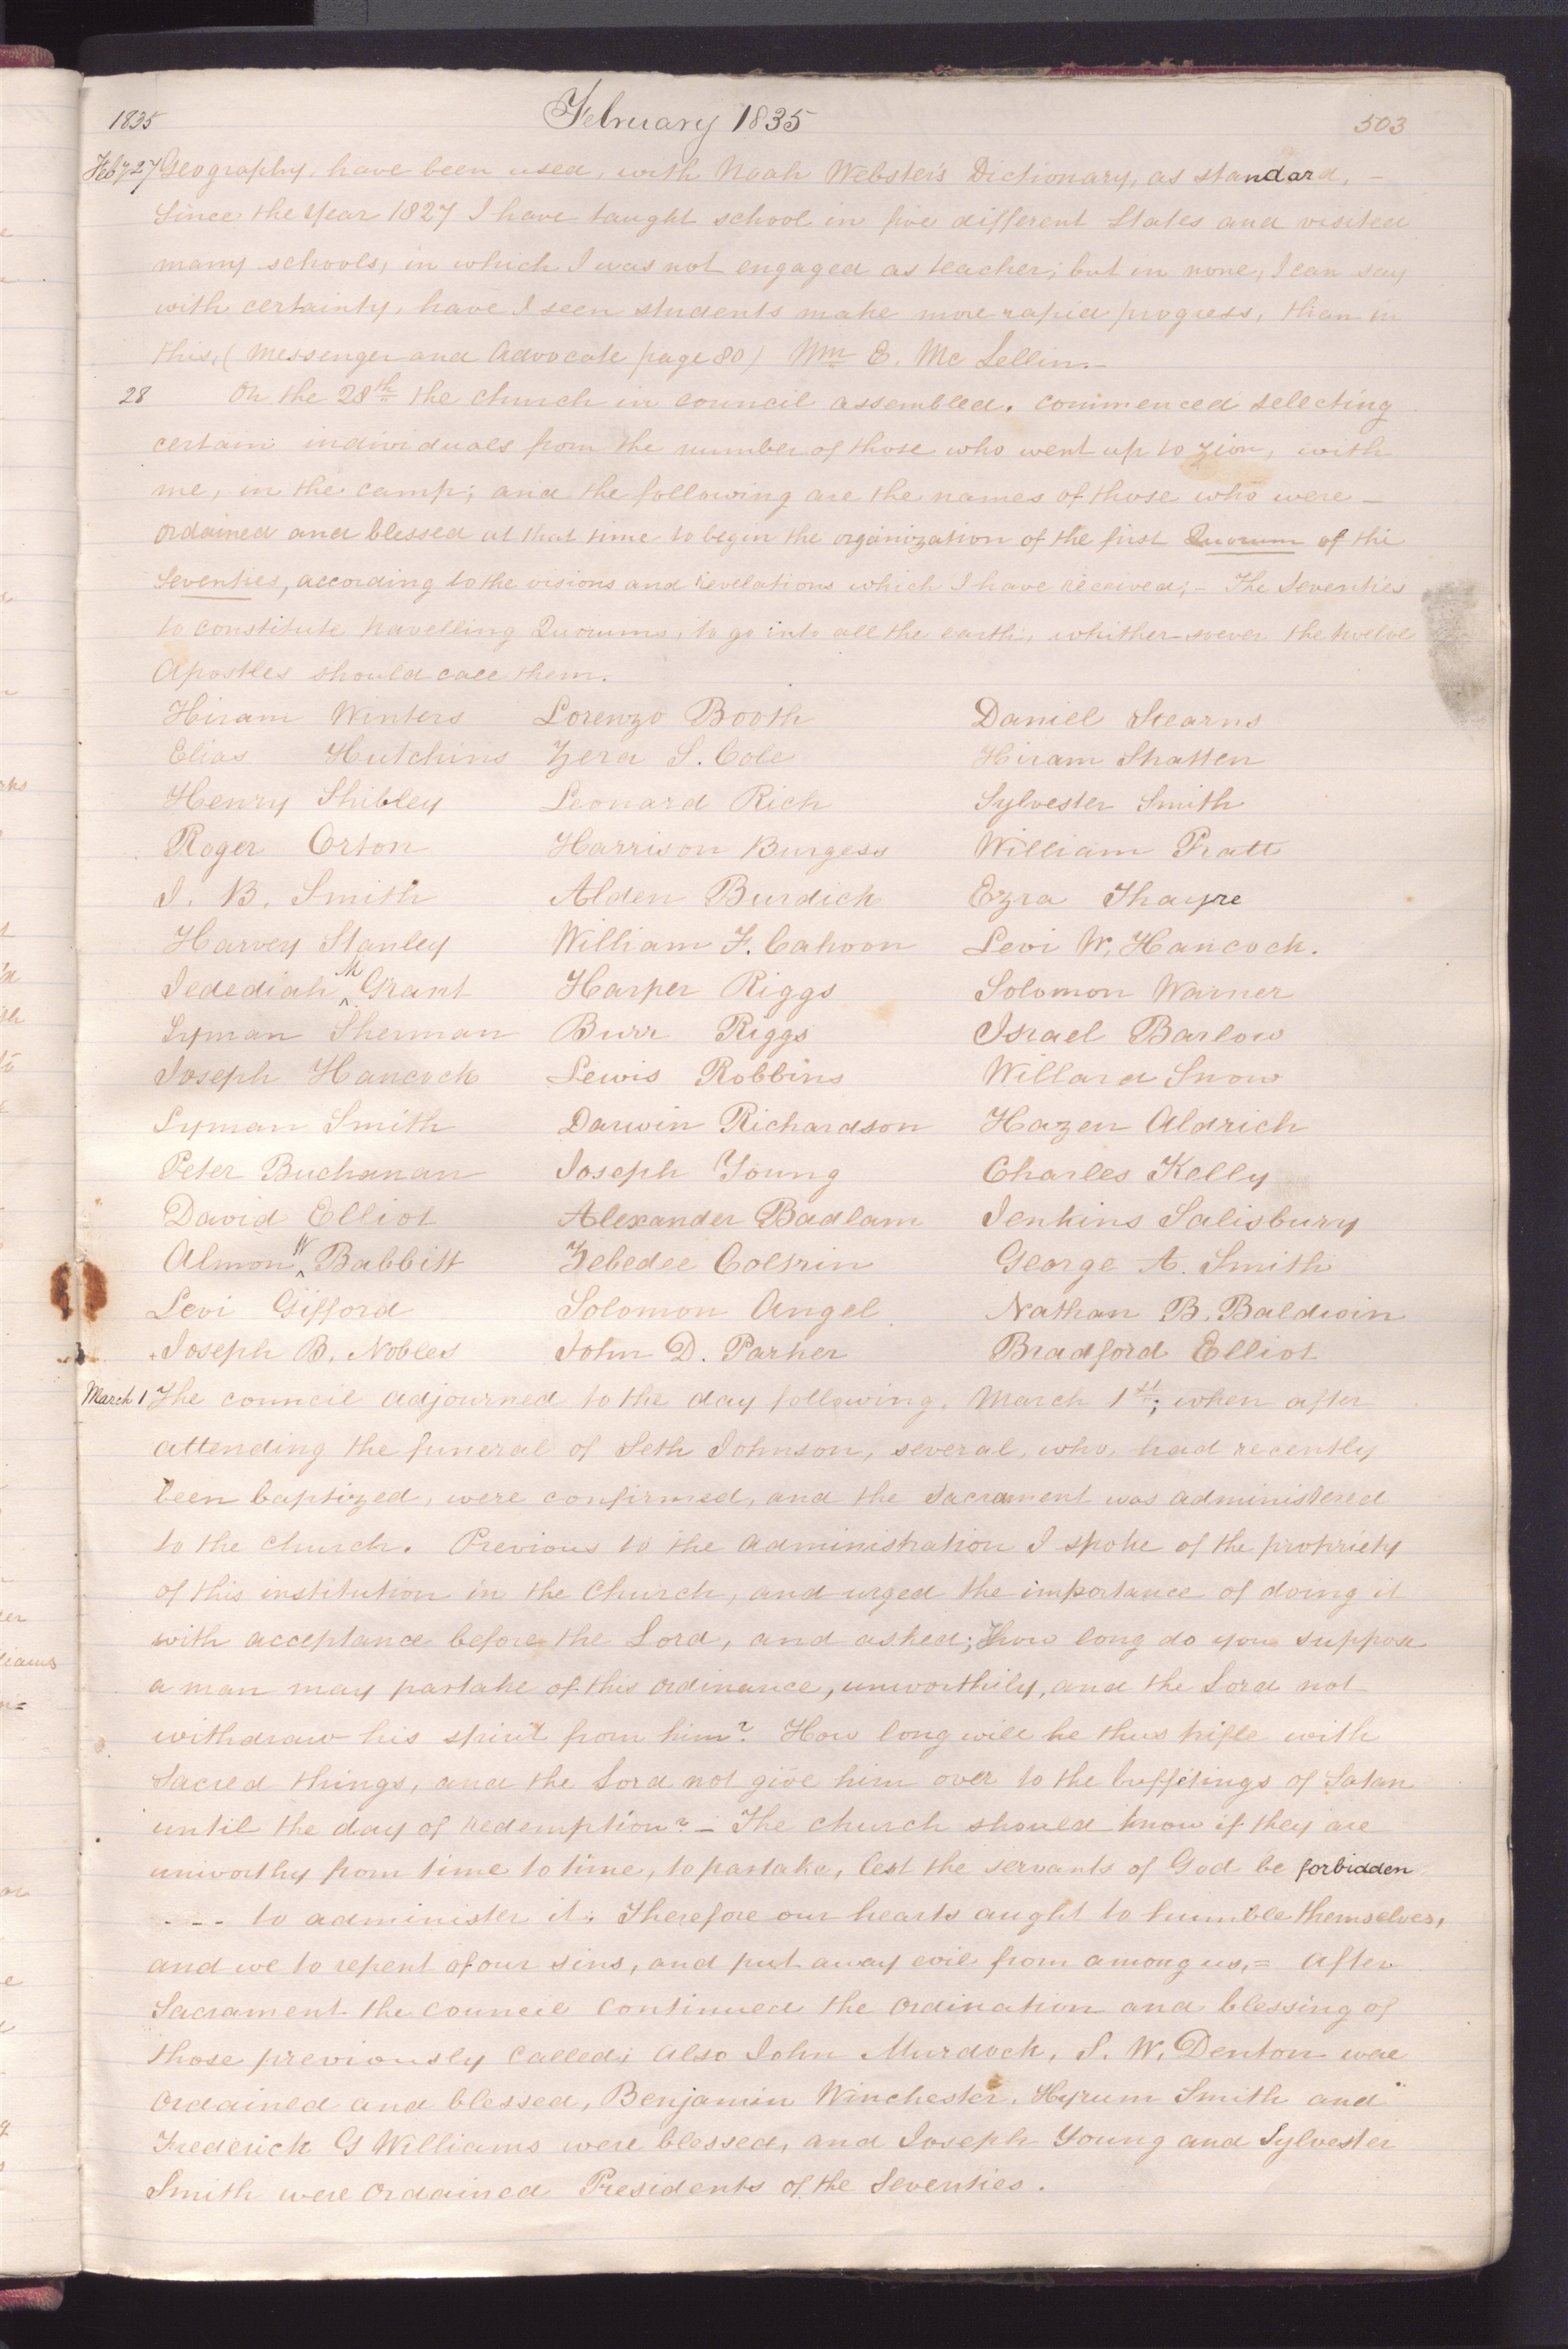 1835 February 1835 503
Feby 27 Geography, have been used, with Noah Webster's Dictionary, as standard, –
Since the year 1827 I have taught school in five different States and visited
many schools, in which I was not engaged as teacher; but in none, I can say
with certainty, have I seen students make more rapid progress, than in
this, (Messenger and Advocate page 80) Wm E. Mc Lellin.
28 On the 28th the church in council assembled. commenced selecting
certain individuals from the number of those who went up to Zion, with
me, in the camp; and the following are the names of those who were –
ordained and blessed at that time to begin the organization of the first Quorum of the
Seventies, according to the visions and revelations which I have received; – The Seventies
to constitute travelling Quorums, to go into all the earth, whither-soever the twelve
Apostles should call them.
Hiram Winters Lorenzo Booth Daniel Stearns
Elias Hutchins Zera S. Cole Hiram Stratten
Henry Shibley Leonard Rich Sylvester Smith
Roger Orton Harrison Burgess William Pratt
J. B. Smith Alden Burdick Ezra Thayre
Harvey Stanley William F. Cahoon Levi W. Hancock.
Jedediah M Grant Harper Riggs Solomon Warner
Lyman Sherman Burr Riggs Israel Barlow
Joseph Hancock Lewis Robbins Willard Snow
Lyman Smith Darwin Richardson Hazen Aldrich
Peter Buchanan Joseph Young Charles Kelly
David Elliot Alexander Badlam Jenkins Salisbury
Almon W Babbitt Zebedee Coltrin George A. Smith
Levi Gifford Solomon Angel Nathan B. Baldwin
Joseph B. Nobles John D. Parker Bradford Elliot
March 1 The council adjourned to the day following, March 1st; when after
attending the funeral of Seth Johnson, several, who, had recently
been baptized, were confirmed, and the sacrament was administered
to the church. Previous to the administration I spoke of the propriety
of this institution in the Church, and urged the importance of doing it
with acceptance before the Lord, and asked; How long do you suppose
a man may partake of this ordinance, unworthily, and the Lord not
withdraw his spirit from him? How long will he thus trifle with
Sacred things, and the Lord not give him over to the buffetings of Satan
until the day of redemption? – The church should know if they are
unworthy from time to time, to partake, lest the servants of God be forbidden
- - - to administer it. Therefore our hearts aught to humble themselves,
and we to repent of our sins, and put away evil from among us, = After
Sacrament the council continued the ordination and blessing of
those previously called; Also John Murdock, S. W. Denton were
ordained and blessed, Benjamin Winchester, Hyrum Smith and
Frederick G Williams were blessed, and Joseph Young and Sylvester
Smith were ordained Presidents of the Seventies.